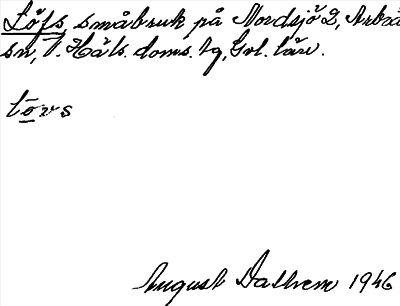 Löfs, småbruk på Nordsjö 2, Arbrå
sn, V. Häls. doms. tg, Gvl. län.
tōvs
August Dallrem 1946